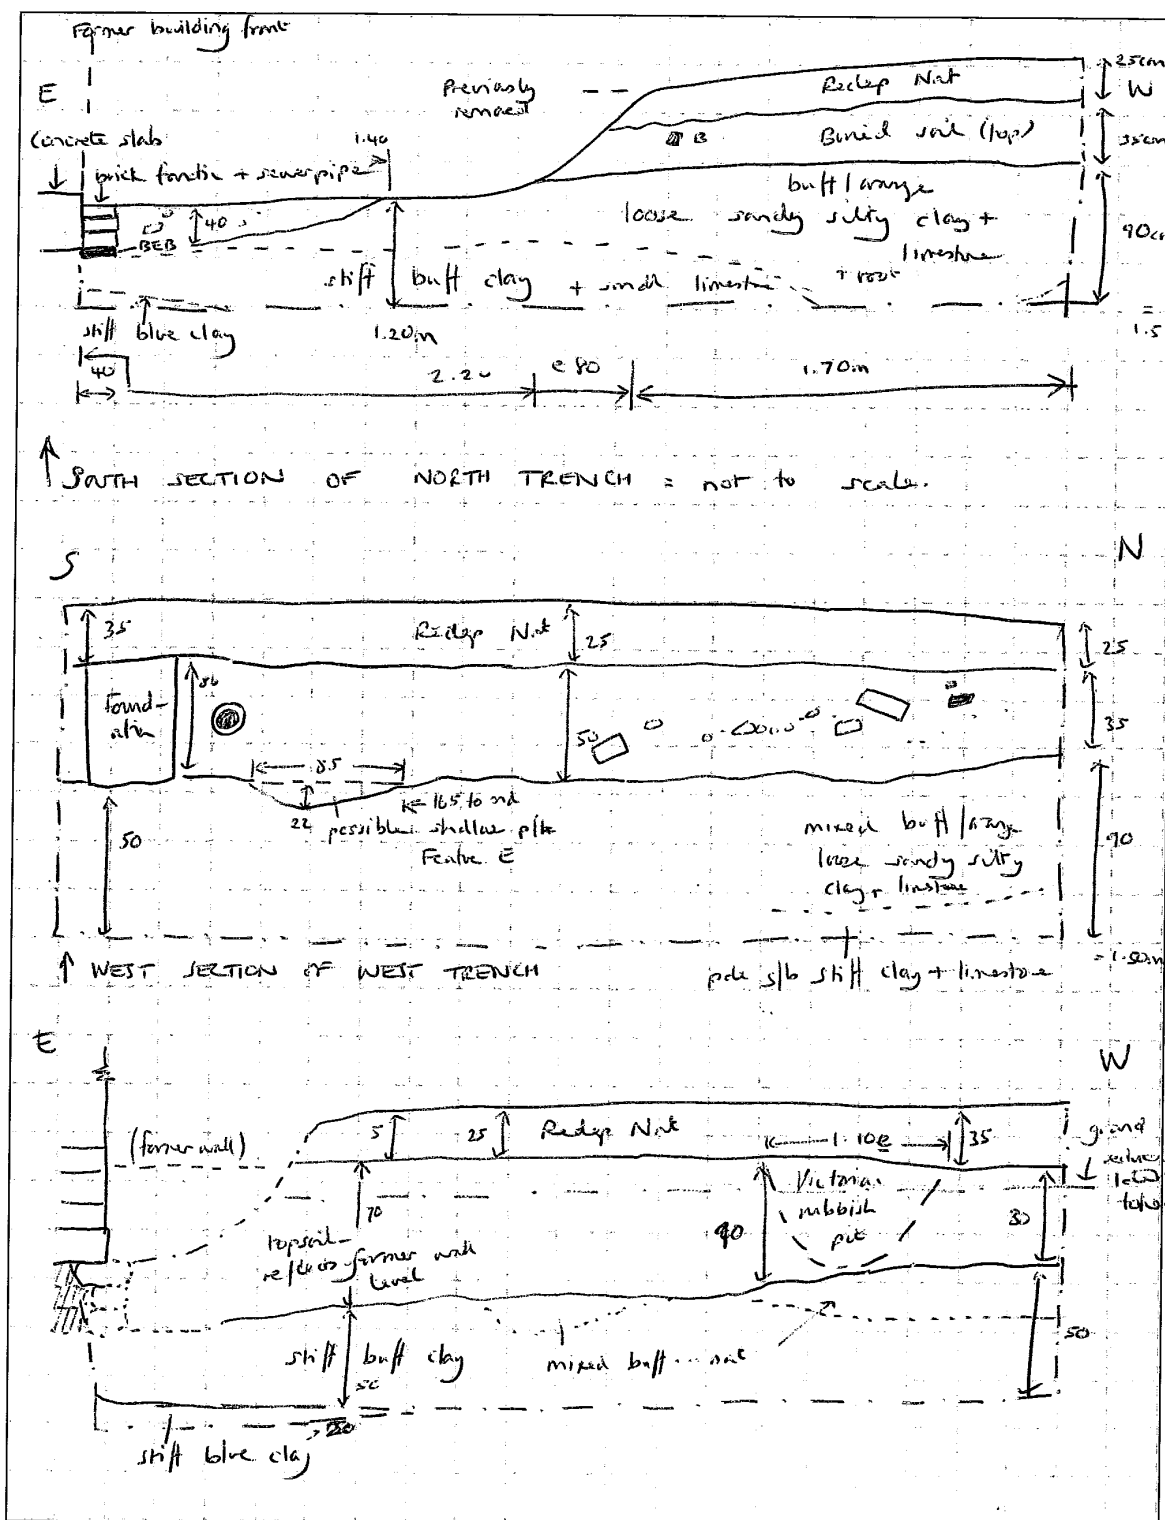 Former building front
E
Previously
removed
Redep Nat
25cm
W
Concrete slab
1.40
B
Buried soil (top)
35cm
brick + sewerpipe
buff/orange
loose sandy silty clay +
limestone
+ root
90cm
40
BEB
stiff buff clay + small limestone
stiff blue clay
1.20m
=
1.5
40
2.20
c 80
1.70m
SOUTH SECTION OF NORTH TRENCH = not to scale.
S
N
35
Redep Nat
25
25
Found-
ation
50
35
85
22
possible shallow
Feature E
50
mixed buff/orange
loose sandy silty
clay + limestone
90
WEST SECTION OF WEST TRENCH
stiff clay + limestone
= 1.50m
E
W
(former wall)
5
25
Redep Nat
1.10c
35
70
Victorian
rubbish
pit
90
30
topsoil -
reflects former wall
level
stiff buff clay
50
mixed buff nat
50
stiff blue clay